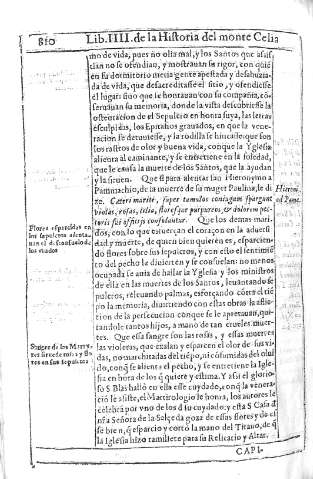 810 Lib. IIII. de la Historia del monte Celia
mo de vida, pues no olia mal, y los Santos que assis
tian no se ofendian, y mostrauan su rigor, con quiē
en su dormitorio metia gente apestada y desahuzia
da de vida, que desacreditasse el sitio, y ofendiesse
el lugar: sino que le honrauan con su compañia, cō
seruauan su memoria, donde la vista descubriesse la
ostentacion de el Sepulcro en honra suya, las letras
esculpidas, los Epitafios grauados, en que la vene-
racion se detuuiesse, y la rodilla se hincasse: que son
los rastros de olor y buena vida, conque la Yglesia
alienta al caminante, y se entretiene en la soledad,
que le causa la muerte de los Santos, que la ayudan
y la siruen. Que si para alentar san Hieronymo a
Pammachio, de la muerte de su muger Paulina, le di
ze. Cæteri mariti, super tumulos coniugum spargunt
violas, rosas, lilia, floresque purpureos, & dolorem pec
toris his officijs consolantur. Que los demas mari-
dos, con lo que esfuerçan el coraçon en la aduersi
dad y muerte, de quien bien quieren es, esparcien-
do flores sobre sus sepulcros, y con esto el sentimiē
to del pecho le diuierten y se consuelan: no menos
ocupada se auia de hallar la Yglesia y los ministros
de ella en las muertes de los Santos, leuantando se
pulcros, releuando palmas, esforçando cōtra el tiē
po la memoria, diuirtiendo con estas obras la aflic-
tion de la persecucion conque se le apretauan, qui-
tandole tantos hijos, a mano de tan crueles muer-
tes. Que essa sangre son las rosas, y essas muertes
las violetas, que exalan y esparcen el olor de sus vi
das, no marchitadas del tiēpo, ni cōsumidas del olui
do, conq̄ se alienta el pecho, y se entretiene la Igle
sia en hōra de los q̄ quiere y estima. Y assi el glorio-
so S. Blas halló en ella esse cuydado, conq̄ la venera
ciō le assiste, el Martirologio le honra, los autores le
celebrā por vno de los d su cuydado: y esta S. Casa d
nr̄a Señora de la Salçeda goza de essas flores y de es
se bien, q̄ esparcio y cortó la mano del Titano, de q̄
la Iglesia hizo ramillete para su Relicario y Altar.
CAPI-
Hieroni.
ad Pame.
Flores esparcidas en
los sepulcros alentauan
el desconsuelo de
los viudos
Sangre de los Marty
res sirue de rosas y flo
res en sus sepulcros